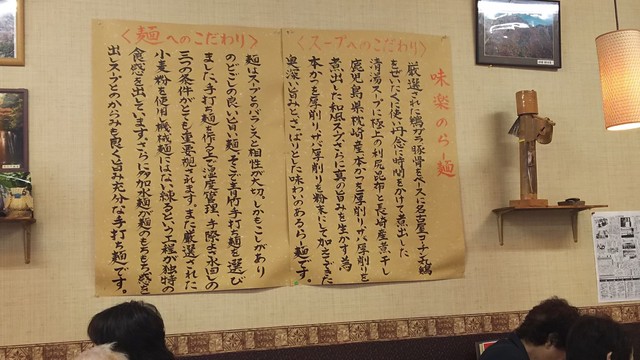 味楽のらー麺
〈スープへのこだわり〉
厳選された鶏ガラ豚骨をベースに名古屋コーチン丸鶏
をぜいたくに使い丹念に時間をかけて煮出した
清湯スープに極上の利尻昆布と長崎産煮干し
鹿児島県枕崎産本かつを厚削りサバ厚削りを
煮出した和風スープさらに真の旨みを生かす為
本かつを厚削り、サバ厚削りを粉末にして加えてできた
奥深い旨みとさっぱりとした味わいのあるらー麺です。
〈麺へのこだわり〉
麺はスープとのバランスと相性が大切、しかもこしがあり
のどごしの良い旨い麺、そこで青竹手打麺を選び
ました、手打ち麺を作る上で湿度管理、手際よさ水回しの
三つの条件がとても重要視されます。また厳選された
小麦粉を使用、機械麺にはない練るという工程が独特の
食感を出しています。さらに多加水麺が麺のもちもち感を
出しスープとのからみも良く旨充分な手打ち麺です。